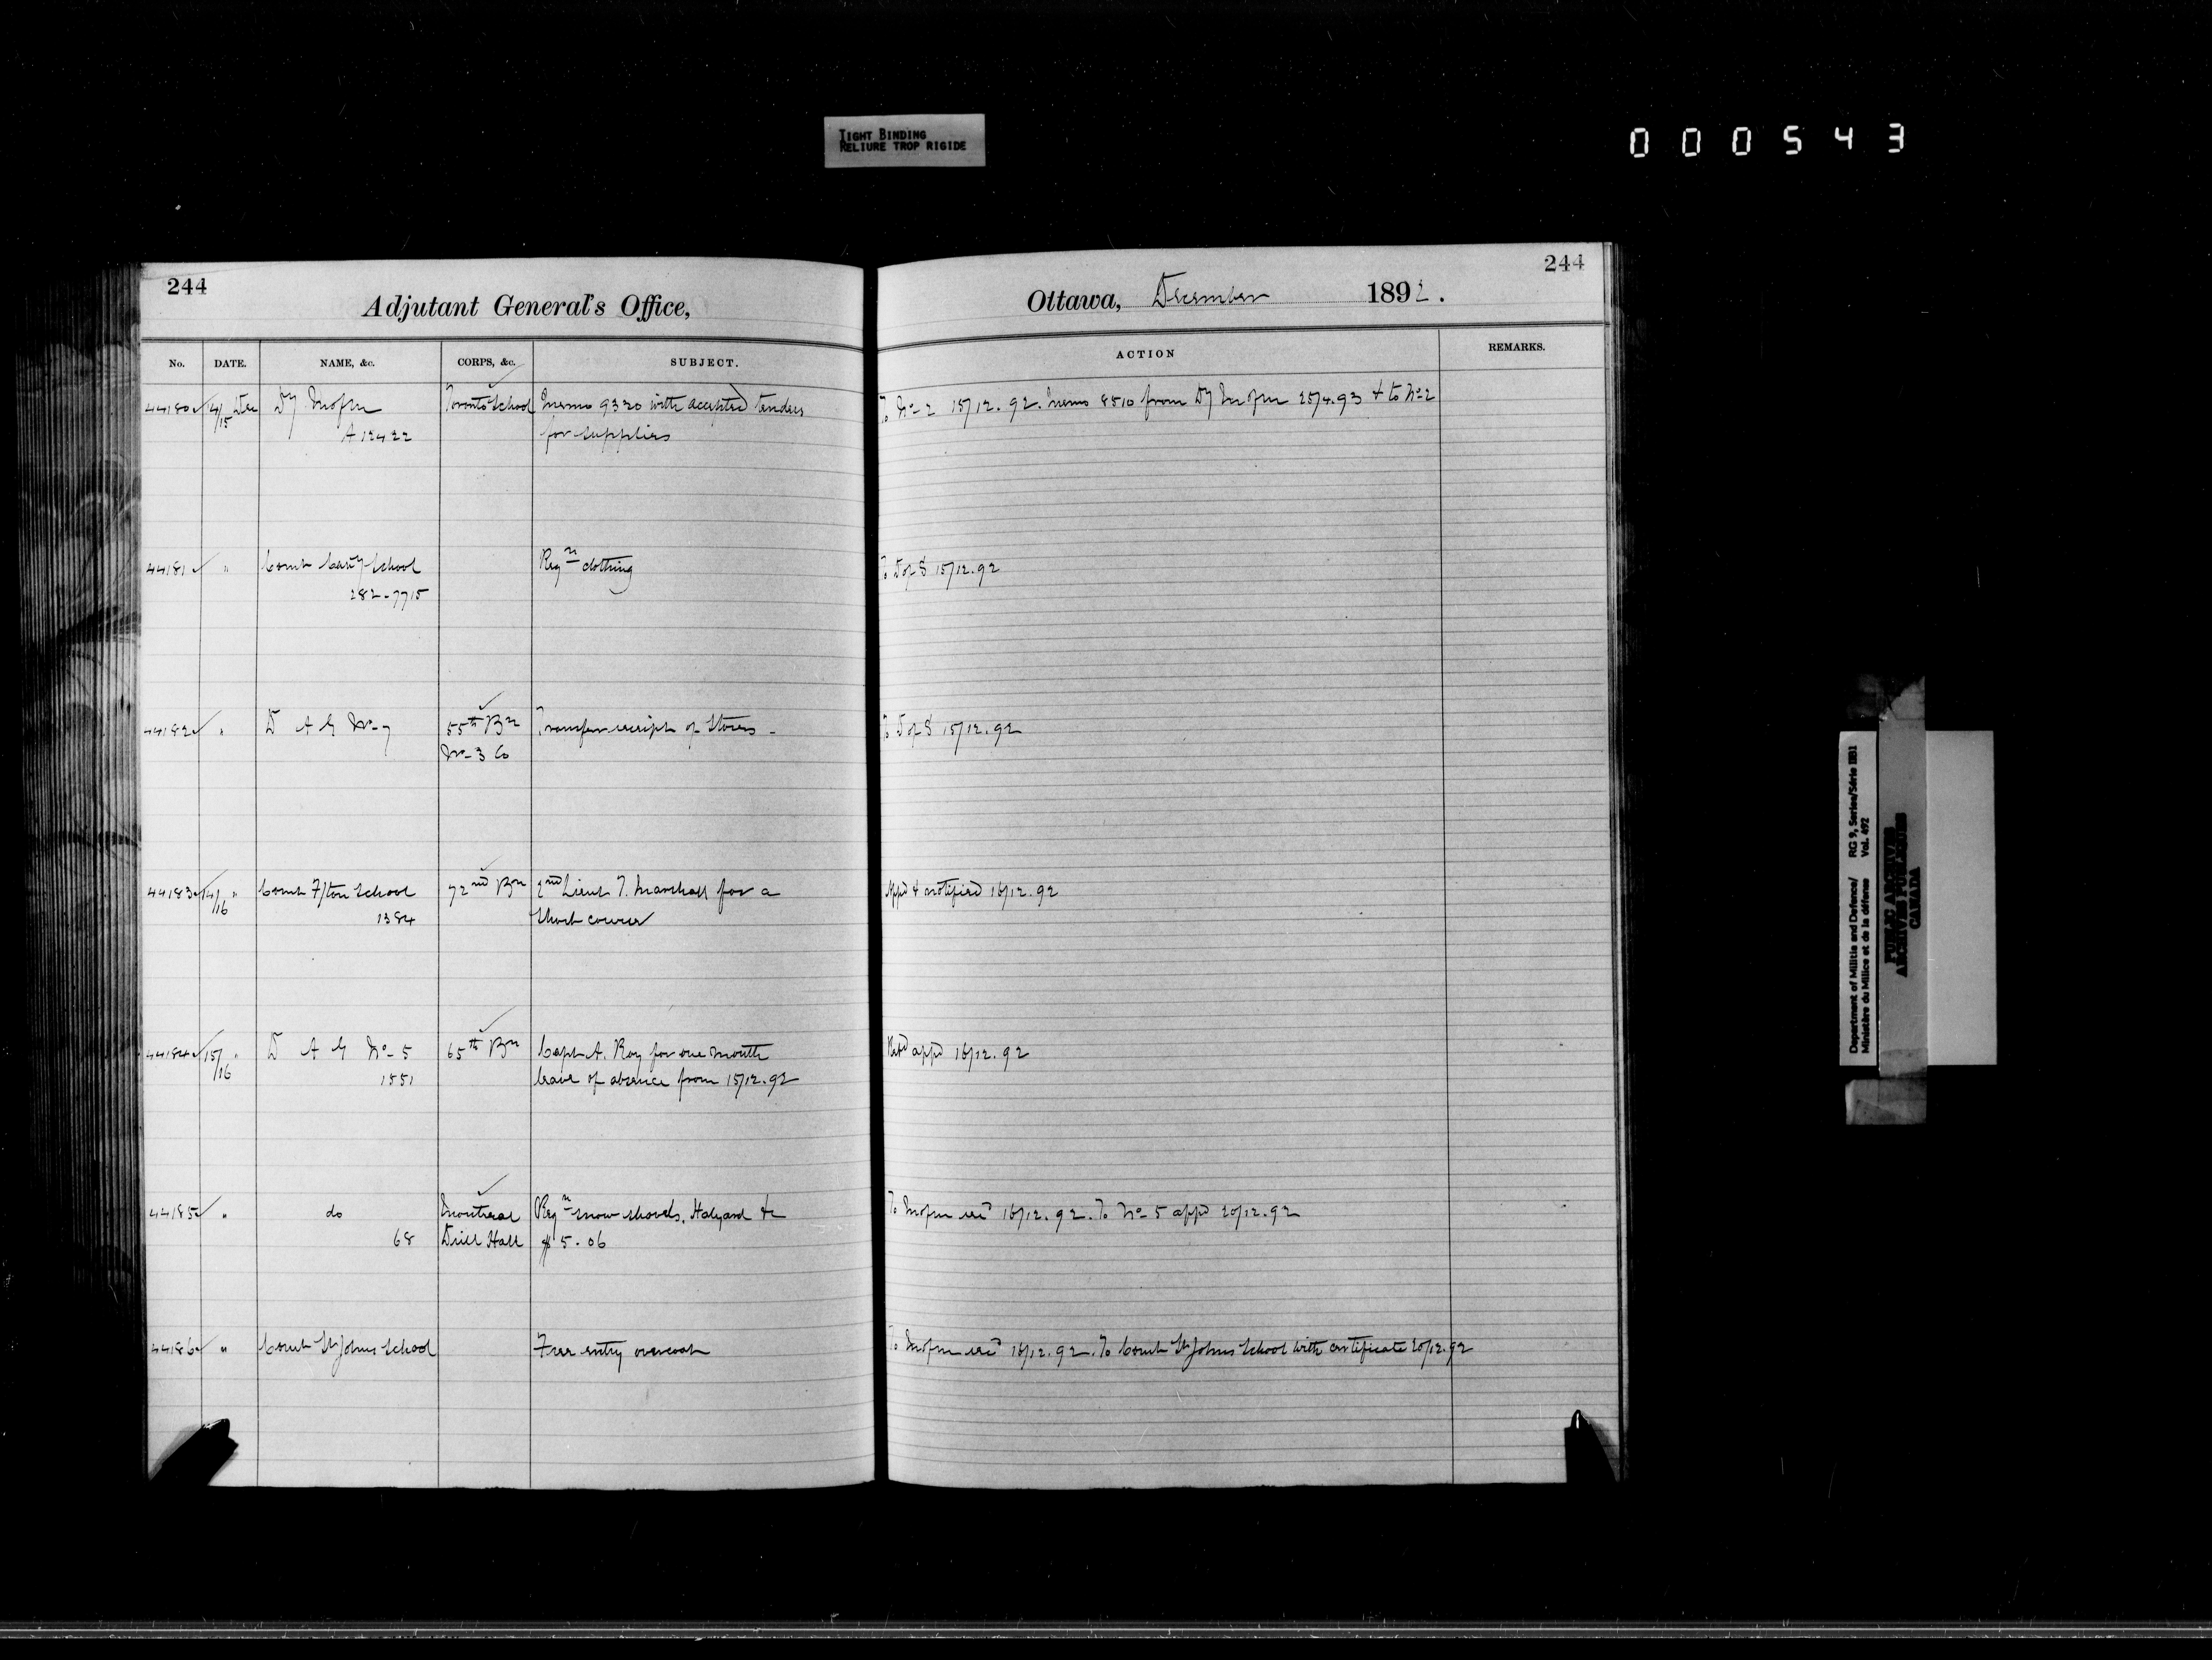 TIGHT BINDING
RELIURE TROP RIGIDE
000543
244
Adjutant General's Office,
244
Ottawa, December 1892.
No. DATE. NAME, &c. CORPS, &c. SUBJECT.
ACTION REMARKS.
44180 14/15 Dec Dy M of M Toronto School Memo 9320 with accepted tenders To No 2 15/12.92. Memo 8510 from Dy M of M 25/4.93 & to No 2
A 12422 for supplies
44181 " Comdt Cavy School Reqn clothing To D of S 15/12.92
282-7715
44182 " D A G No 7 55th Bn Transfer receipt of Stores - To D of S 15/12.92
No 3 Co
44183 14/16 " Comdt F/ton School 72nd Bn 2nd Lieut T. Marshall for a Appd & notified 16/12.92
1384 Short course
44184 15/16 " D A G No 5 65th Bn Capt A. Roy for one month appd 16/12.92
1551 leave of absence from 15/12.92
44185 " do Montreal Reqn snow shovels, Halyard &c To M of M 16/12.92. To No 5 appd 20/12.92
68 Drill Hall $5.06
44186 " Comdt St Johns School Free entry overcoat To M of M 16/12.92. To Comdt St Johns School with certificate 20/12.92
Department of Militia and Defence/ RG 9, Series/Série IIB1
Ministère du Milice et de la défense Vol. 492
PUBLIC ARCHIVES
ARCHIVES PUBLIQUES
CANADA